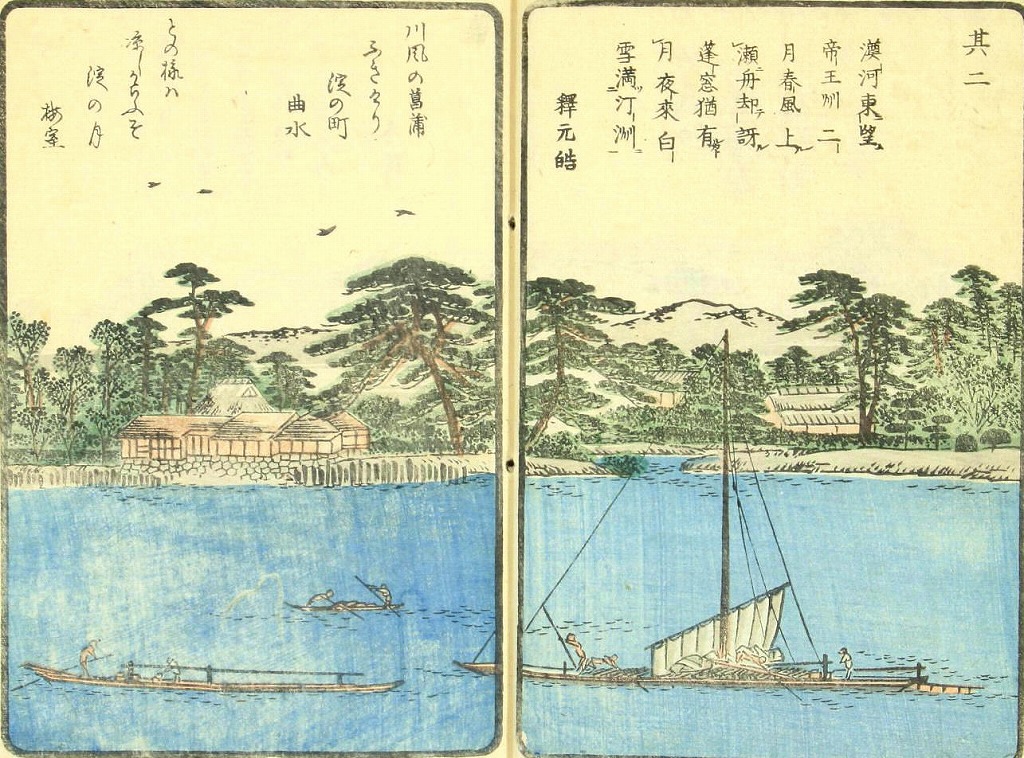 其二
澱河東望
帝王州二
月春風上
瀬舟却訝
蓬窓猶有
月夜來白
雪満汀洲
釋元皓
川風の菖蒲
ふきけり
淀の町
曲水
との様ハ
涼しからふそ
淀の月
梅室